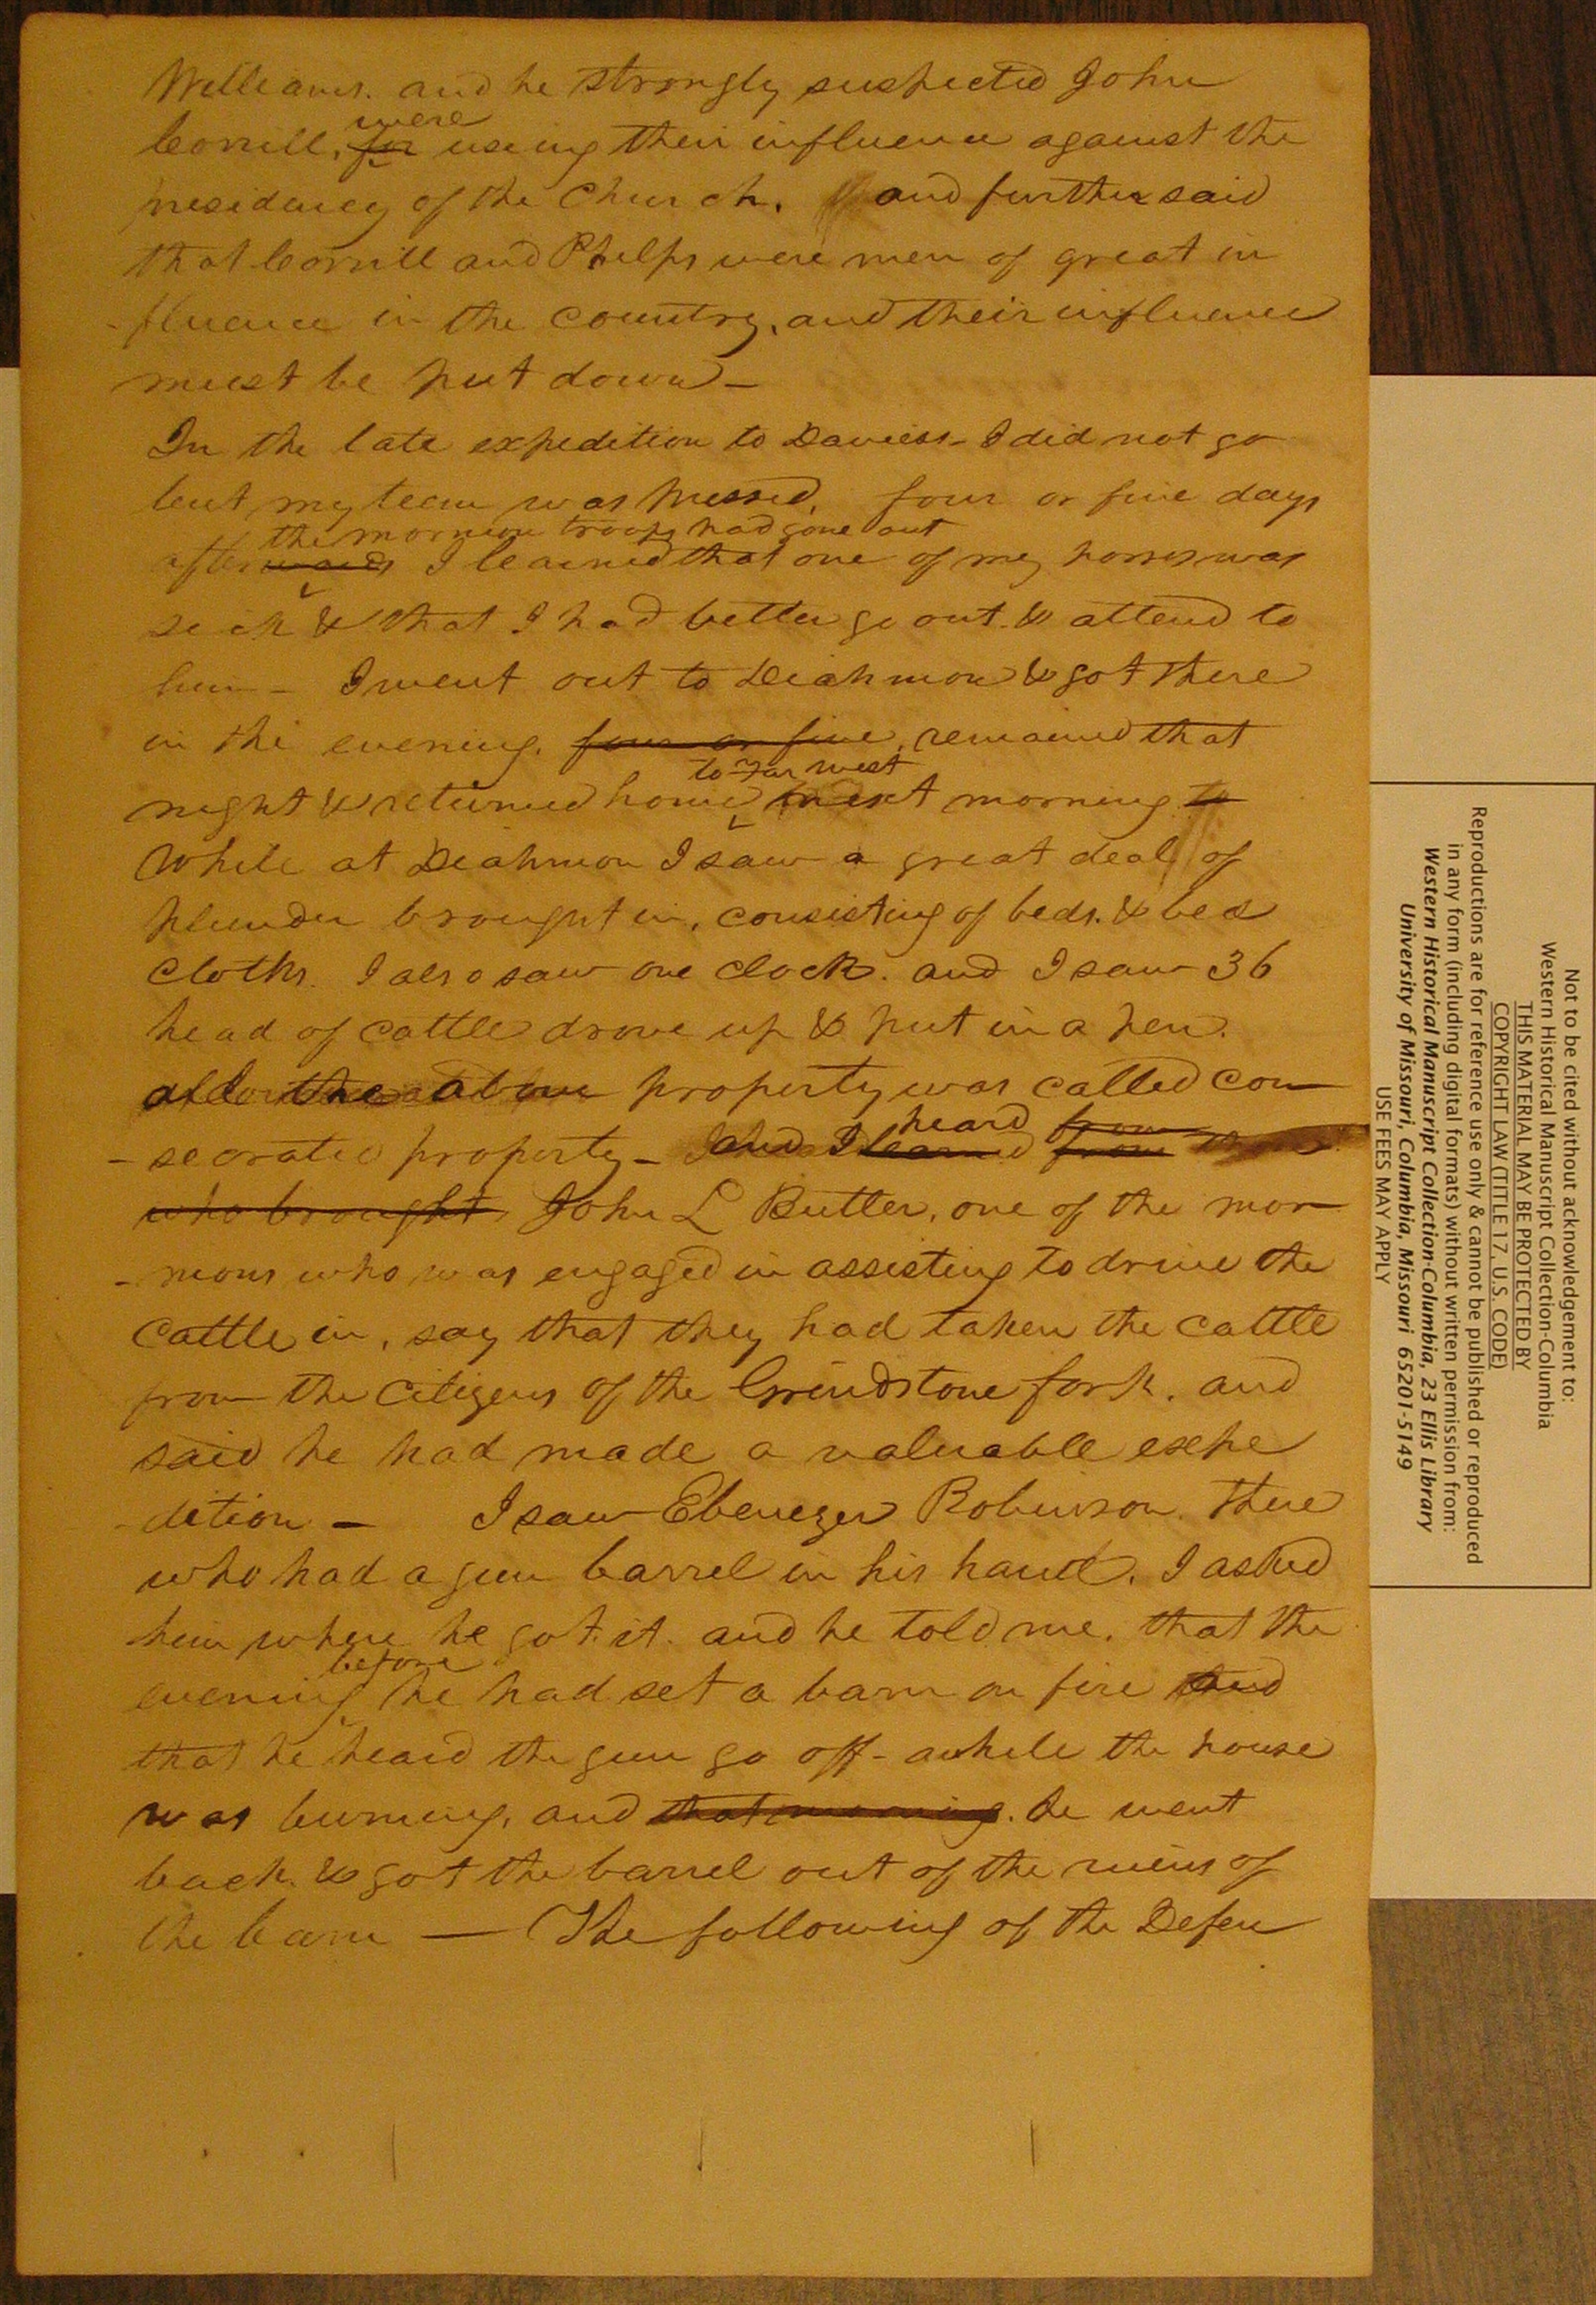 Williams. and he strongly suspected John
were
Corrill, for useing their influence against the
presidency of the Church. and further said
that Corrill and Phelps were men of great in
-fluence in the country, and their influence
must be put down —
In the late expedition to Daviess - I did not go
but my team was pressed, four or five days
the mormon troops had gone out
afterwards I learned that one of my horses was
sick & that I had better go out & attend to
him - I went out to Diahmon & got there
in the evening. four or five, remained that
to Far west
night & returned home next morning to
While at Diahmon I saw a great deal of
plunder brought in, consisting of beds. & bed
cloths. I also saw one clock. and I saw 36
head of cattle drove up & put in a pen.
all the above property was called con
-secrated property - and I learned from
heard from
who brought John L Butler, one of the mor
-mons who was engaged in assisting to drive the
cattle in, say that they had taken the cattle
from the citizens of the Grindstone fork. and
said he had made a valuable expe
-dition — I saw Ebenezer Robinson. there
who had a gun barrel in his hand. I asked
him where he got it. and he told me. that the
before
evening he had set a barn on fire and
that he heard the gun go off - awhile the house
was burning, and that morning. he went
back & got the barrel out of the ruins of
the barn — The following of the Defen
Not to be cited without acknowledgement to:
Western Historical Manuscript Collection-Columbia
THIS MATERIAL MAY BE PROTECTED BY
COPYRIGHT LAW (TITLE 17, U.S. CODE)
Reproductions are for reference use only & cannot be published or reproduced
in any form (including digital formats) without written permission from:
Western Historical Manuscript Collection-Columbia, 23 Ellis Library
University of Missouri, Columbia, Missouri 65201-5149
USE FEES MAY APPLY